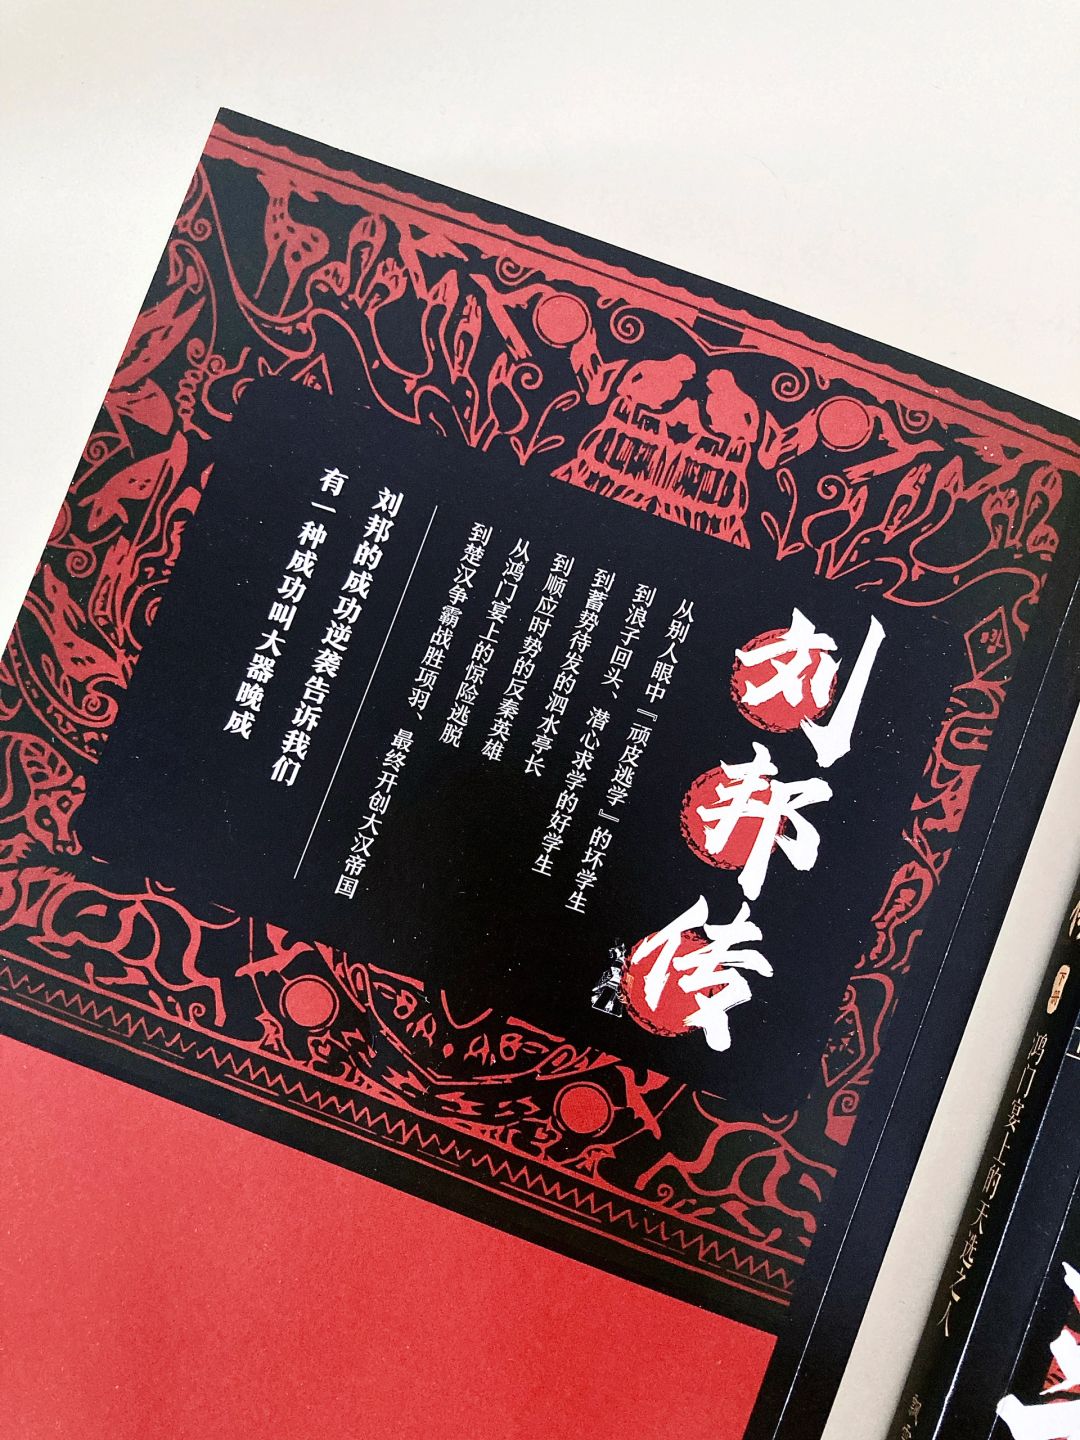 刘邦传
从别人眼中『顽皮逃学』的坏学生
到浪子回头、潜心求学的好学生
到蓄势待发的泗水亭长
到顺应时势的反秦英雄
从鸿门宴上的惊险逃脱
到楚汉争霸战胜项羽、最终开创大汉帝国
刘邦的成功逆袭告诉我们
有一种成功叫大器晚成
下册
鸿门宴上的天选之人